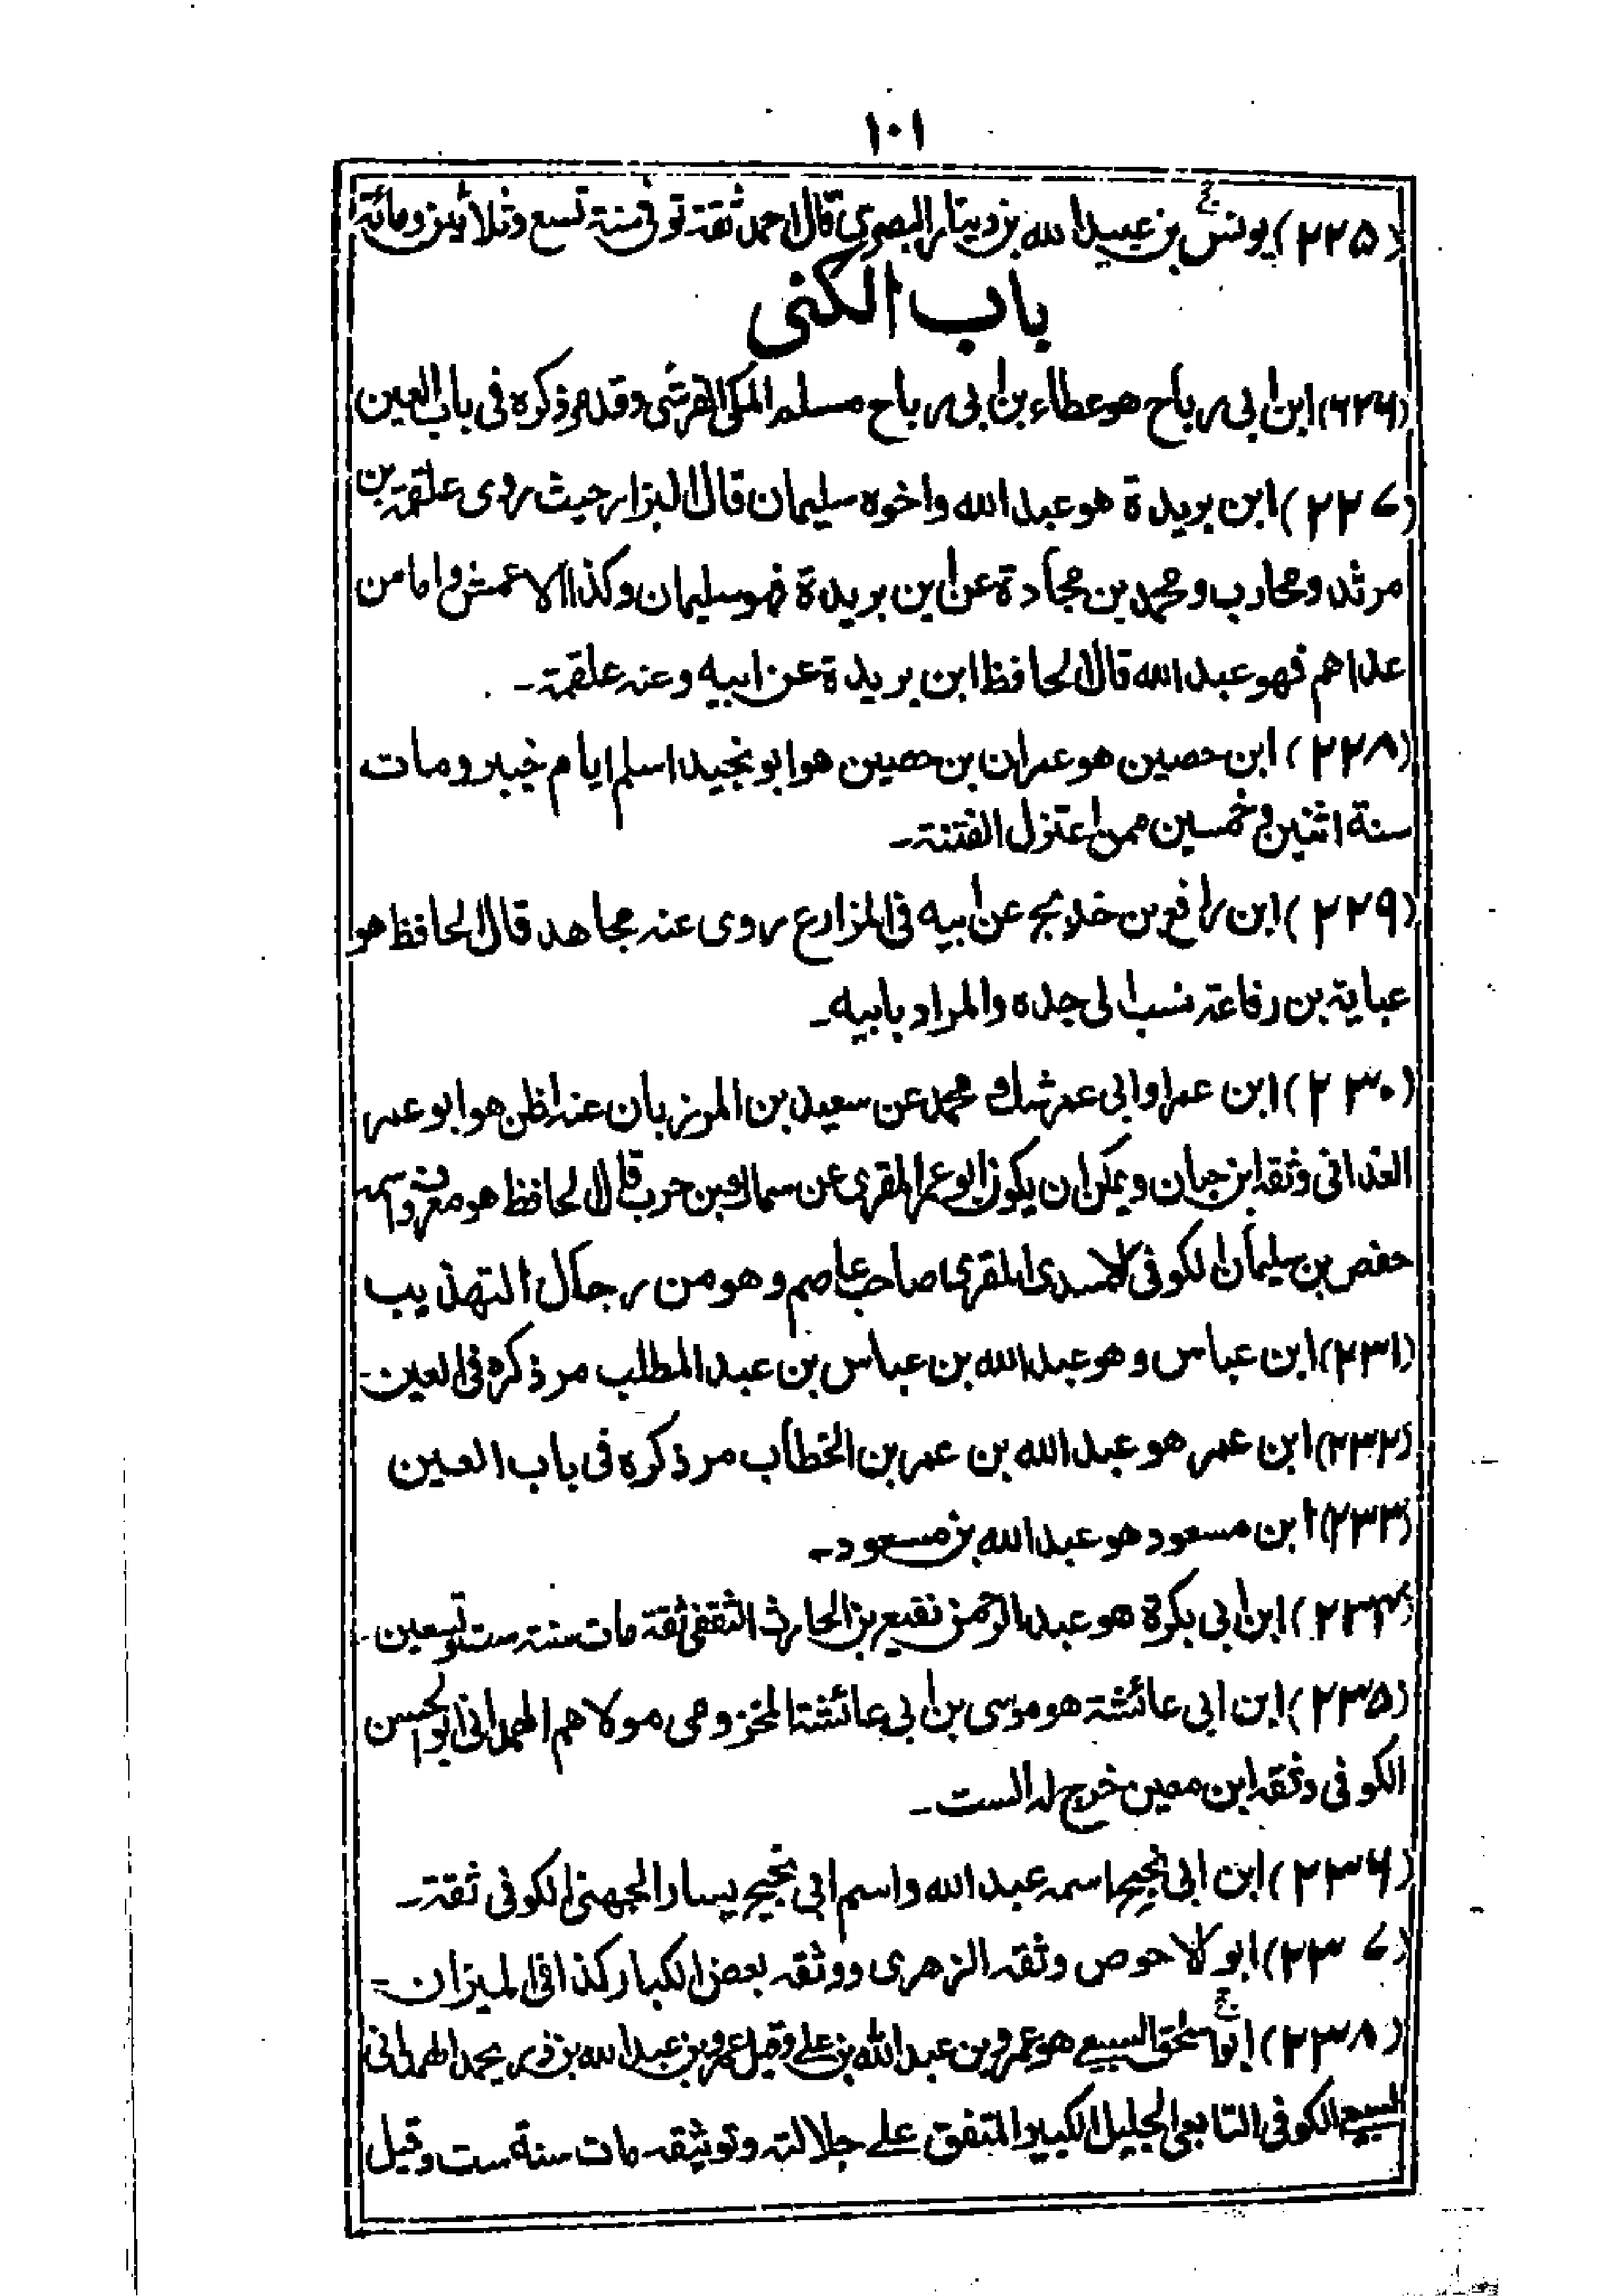 ١٠١
(٢٢٥) يونس بن عبيد الله بن دينار البصري قال احمد ثقة توفى سنة تسع وثلاثين ومائة
باب الكنى
(٢٢٦) ابن ابى رباح هو عطاء بن ابى رباح مسلم المكى القرشى وقد مر ذكره فى باب العين
(٢٢٧) ابن بريدة هو عبد الله واخوه سليمان قال البزار حيث روى علقمة بن
مرثد ومحارب ومحمد بن حجادة عن ابن بريدة فهو سليمان وكذا الاعمش واما من
عداهم فهو عبد الله قال الحافظ ابن بريدة عن ابيه وعنه علقمة۔
(٢٢٨) ابن حصين هو عمران بن حصين هو ابو نجيد اسلم ايام خيبر ومات
سنة اثنين وخمسين ممن اعتزل الفتنة۔
(٢٢٩) ابن رافع بن خديج عن ابيه فى المزارع روى عنه مجاهد قال الحافظ هو
عباية بن رفاعة نسب الى جده والمراد بابيه۔
(٢٣٠) ابن عمر او ابى عمر شك محمد عن سعيد بن المرزبان عنه اظن هو ابو عمر
الغدانى وثقه ابن حبان ويمكن ان يكون ابو عمر المقرى عن سماك بن حرب قال الحافظ هو معروف اسمه
حفص بن سليمان الكوفى الاسدى المقرى صاحب عاصم وهو من رجال التهذيب
(٢٣١) ابن عباس وهو عبد الله بن عباس بن عبد المطلب مر ذكره فى العين۔
(٢٣٢) ابن عمر هو عبد الله بن عمر بن الخطاب مر ذكره فى باب العين
(٢٣٣) ابن مسعود هو عبد الله بن مسعود۔
(٢٣٤) ابن ابى بكرة هو عبد الرحمن نفيع بن الحارث الثقفى ثقة مات سنة ست وتسعين۔
(٢٣٥) ابن ابى عائشة هو موسى بن ابى عائشة المخزومى مولاهم الهمدانى ابو الحسن
الكوفى وثقه ابن معين خرج له الست۔
(٢٣٦) ابن ابى نجيح اسمه عبد الله واسم ابى نجيح يسار الجهنى الكوفى ثقة۔
(٢٣٧) ابو الاحوص وثقه الزهرى ووثقه بعض الكبار كذا فى الميزان۔
(٢٣٨) ابو اسحق السبيعى هو عمرو بن عبد الله بن على وقيل عمرو بن عبد الله بن ذى يحمد الهمدانى
السبيعى الكوفى التابعى الجليل الكبير المتفق على جلالته وتوثيقه مات سنة ست وقيل